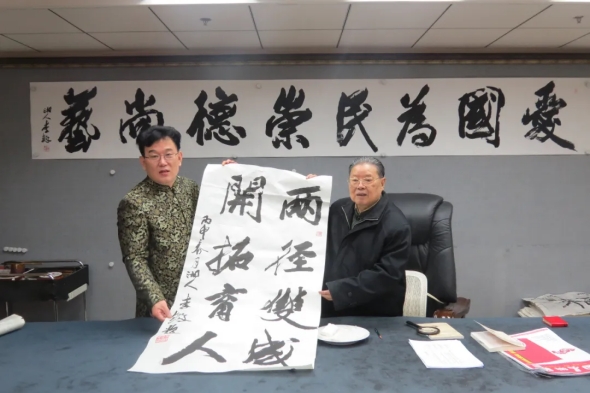 愛國為民崇德尚藝
兩徑雙成
開拓育人
丙申春